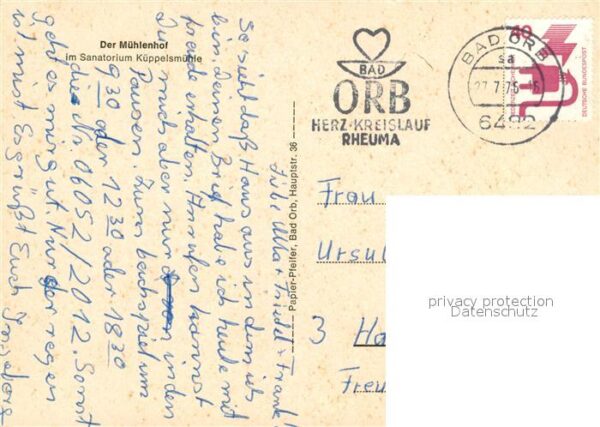 Der Mühlenhof
im Sanatorium Küppelsmühle
Papier-Pfeifer, Bad Orb, Hauptstr. 36
BAD
ORB
HERZ-KREISLAUF
RHEUMA
BAD ORB
sa
27.7.76
6482
40
DEUTSCHE BUNDESPOST
Lübe Ulla + Friedel + Frank!
So sieht daß Haus aus in dem ich
bin. Deinen Brief habe ich heute mit
Freude erhalten. Anrufen kannst
Du mich aber nur in den
Pausen. Zum beispiel um
9.30 oder 12.30 oder 18.30
die Nr. 06052/2012. Sonst
geht es mir gut. Nur der regen
ist mist. Es grüßt Euch
Frau
Ursul
3 Ha
Freu
privacy protection
Datenschutz